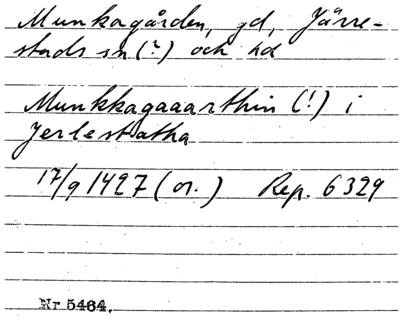 Munkagården, gd, Järre-
stads sn (?) och hd
Munkkagaaarthin (!) i
Jerlestatha
17/9 1427 (or.) Rep. 6329
Nr 5464.